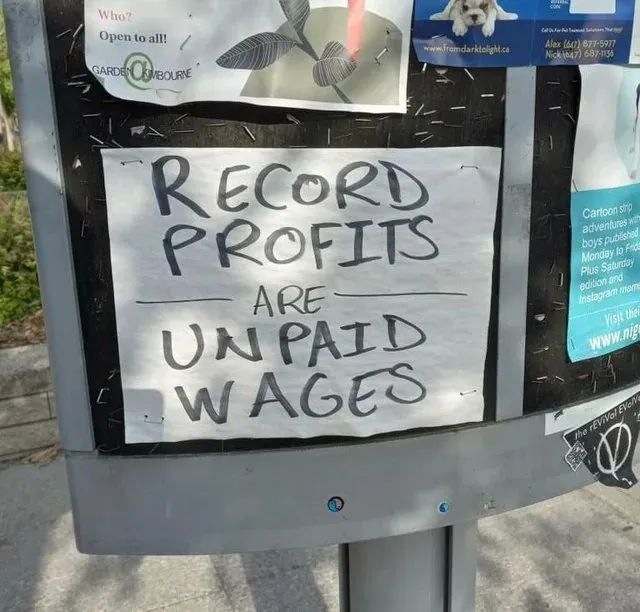 Who?
Open to all!
www.fromdarktolight.ca
Alex (647) 877-5977
Nick (647) 687-1136
RECORD
PROFITS
ARE
UNPAID
WAGES
Cartoon strip
adventures
boys published
Monday to
Plus Saturday
edition and
Instagram
Visit
www.nig
the rEViVol